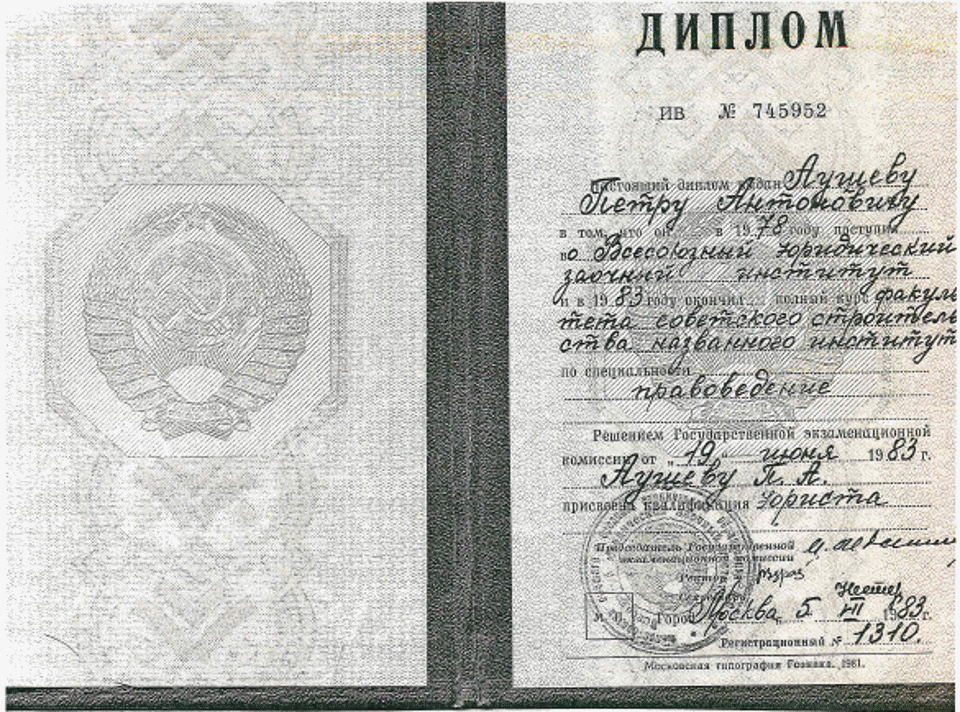 ДИПЛОМ
ИВ № 745952
Настоящий диплом выдан Аушеву
Петру Антоновичу
в том, что он в 1978 году поступил
во Всесоюзный юридический
заочный институт
и в 1983 году окончил полный курс факуль
тета советского строитель
ства названного институт
по специальности
правоведение
Решением Государственной экзаменационной
комиссии от „19" июня 1983 г.
Аушеву П. А.
присвоена квалификация юриста
Председатель Государственной
экзаменационной комиссии
Ректор
Секретарь
М. Город Москва, 5 VII 1983 г.
Регистрационный № 1310.
Московская типография Гознака. 1981.